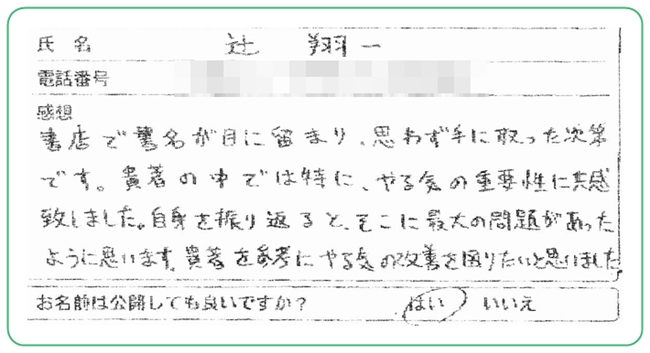 氏 名 辻 翔一
電話番号
感想
書店で署名が目に留まり、思わず手に取った次第
です。貴著の中では特に、やる気の重要性に共感
致しました。自身を振り返ると、そこに最大の問題があった
ように思います。貴著を参考にやる気の改善を図りたいと思いました
お名前は公開しても良いですか? はい いいえ